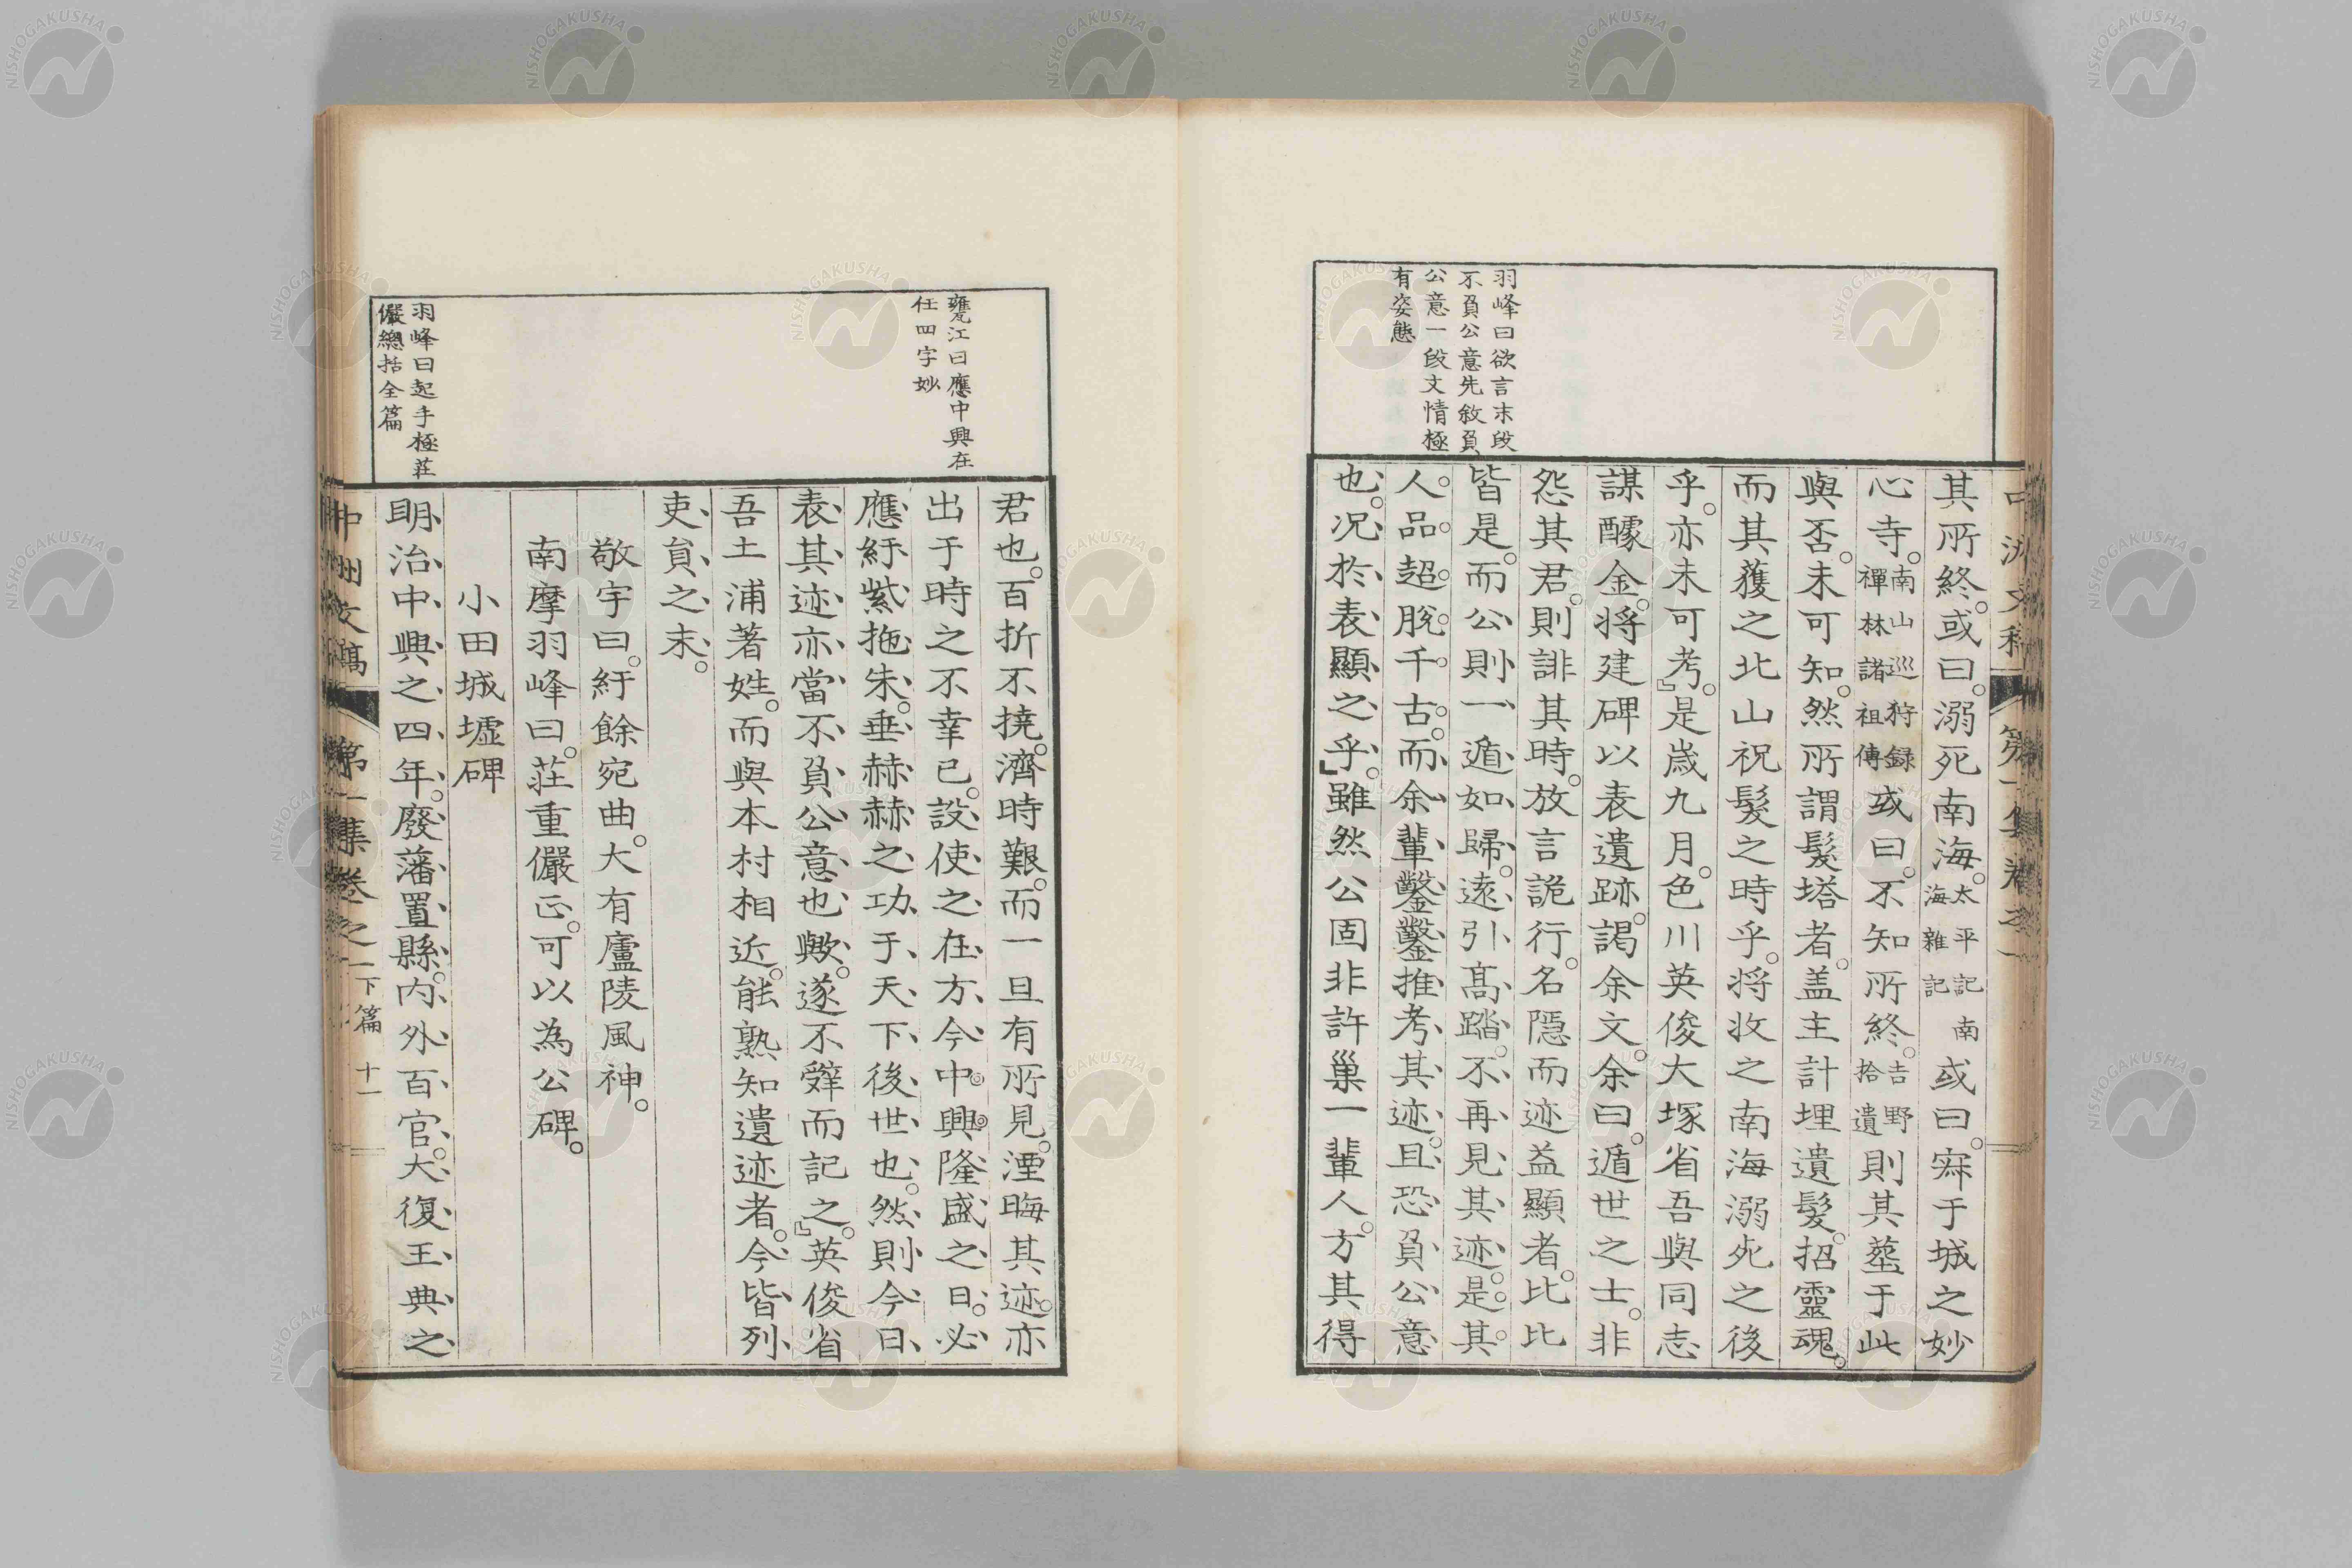 羽峰曰欲言末段
不負公意先敘負
公意一段文情極
有姿態
其所終。或曰。溺死南海。太平記南海雜記或曰。寀于城之妙
心寺。南山巡狩録禪林諸祖傳或曰。不知所終。吉野拾遺則其葬于此
與否。未可知。然所謂髮塔者。盖主計埋遺髮。招靈魂。
而其獲之北山祝髮之時乎。將收之南海溺死之後
乎。亦未可考。』是歳九月。色川英俊大塚省吾與同志
謀醵金。將建碑以表遺跡。謁余文。余曰。遁世之士。非
怨其君。則誹其時。放言詭行。名隱而迹益顯者。比比
皆是。而公則一遁如歸。遠引高踏。不再見其迹。是其
人品超脫千古。而余輩鑿鑿推考其迹。且恐負公意
也。况於表顯之乎。』雖然公固非許巢一輩人。方其得
甕江曰應中興在
任四字妙
羽峰曰起手極莊
儼總括全篇
君也。百折不撓。濟時艱。而一旦有所見。湮晦其迹。亦
出于時之不幸已。設使之在方今中興隆盛之日。必
應紆紫拖朱。垂赫赫之功于天下後世也。然則今日
表其迹。亦當不負公意也歟。遂不辤而記之。』英俊省
吾土浦著姓。而與本村相近。能熟知遺迹者。今皆列
吏員之末。
敬宇曰。紆餘宛曲。大有廬陵風神。
南摩羽峰曰。莊重儼正。可以為公碑。
小田城墟碑
明治中興之四年。廢藩置縣。内外百官。大復王典之
中洲文稿　第一集卷之一下篇　十一